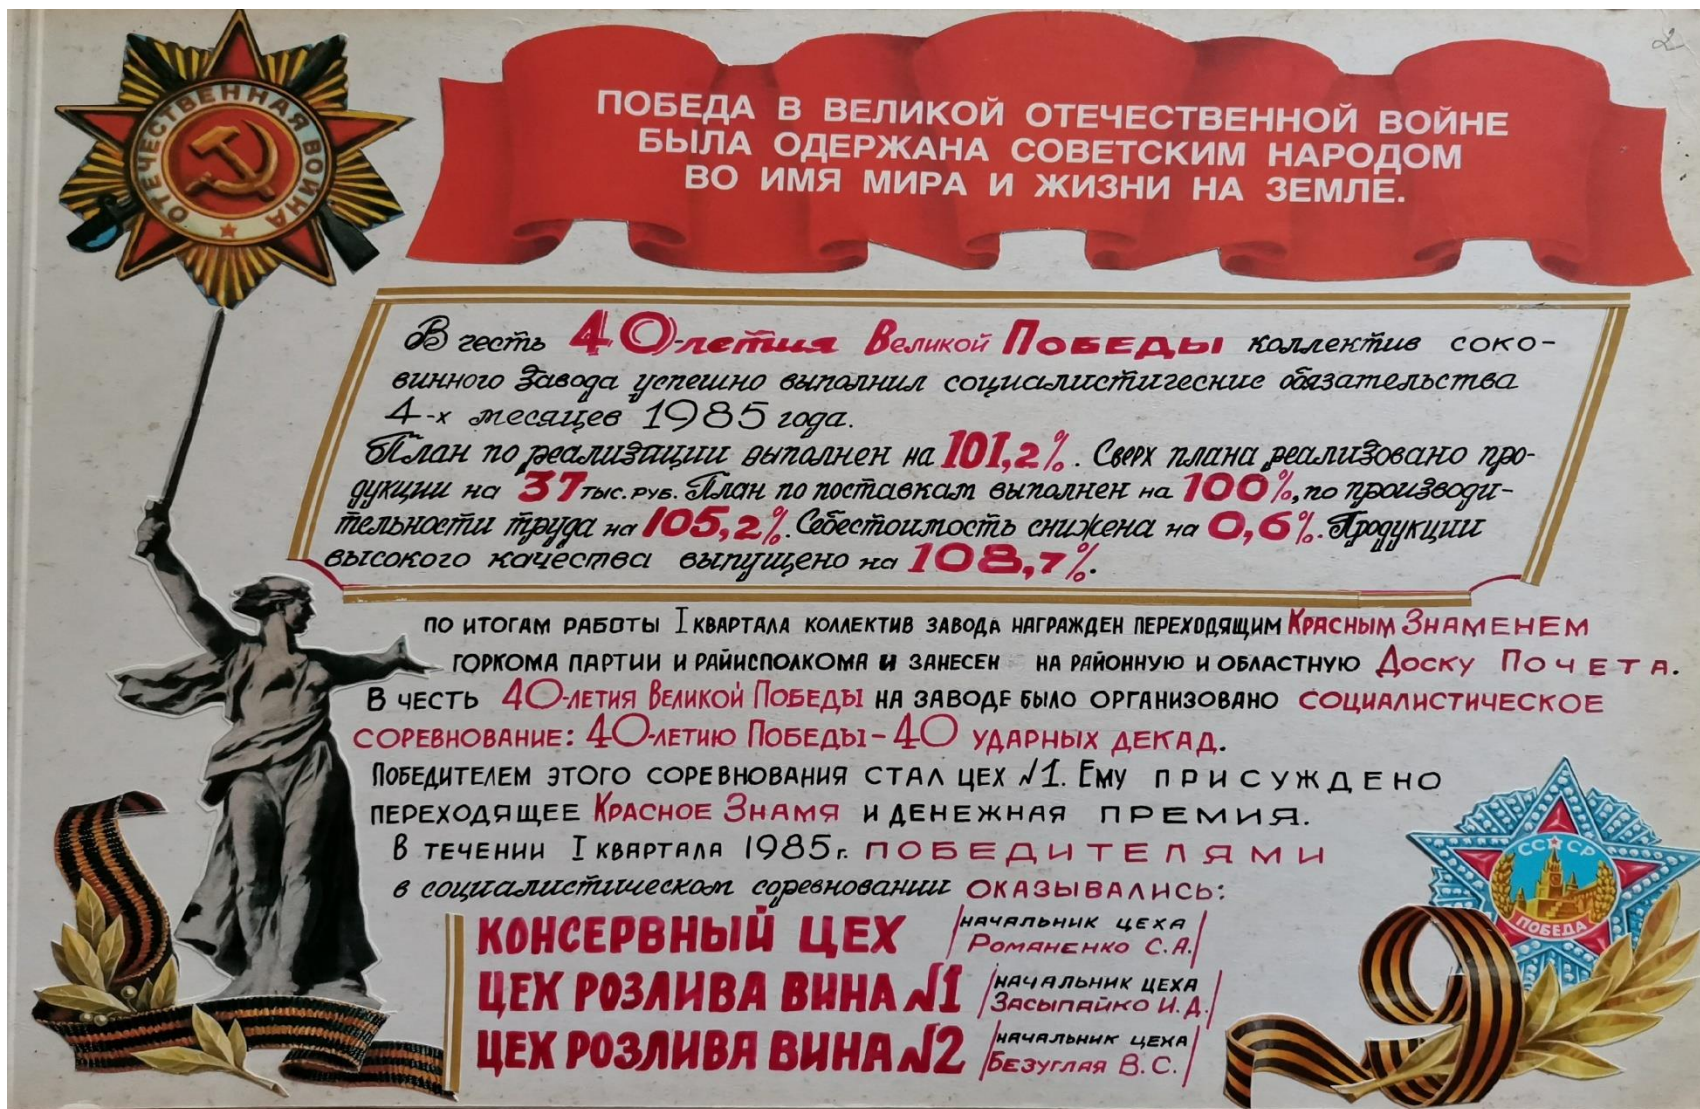 2
ОТЕЧЕСТВЕННАЯ ВОЙНА
ПОБЕДА В ВЕЛИКОЙ ОТЕЧЕСТВЕННОЙ ВОЙНЕ
БЫЛА ОДЕРЖАНА СОВЕТСКИМ НАРОДОМ
ВО ИМЯ МИРА И ЖИЗНИ НА ЗЕМЛЕ.
В честь 40-летия Великой Победы коллектив соко-
винного завода успешно выполнил социалистические обязательства
4-х месяцев 1985 года.
План по реализации выполнен на 101,2%. Сверх плана реализовано про-
дукции на 37 тыс. руб. План по поставкам выполнен на 100%, по производи-
тельности труда на 105,2%. Себестоимость снижена на 0,6%. Продукции
высокого качества выпущено на 108,7%.
ПО ИТОГАМ РАБОТЫ I КВАРТАЛА КОЛЛЕКТИВ ЗАВОДА НАГРАЖДЕН ПЕРЕХОДЯЩИМ КРАСНЫМ ЗНАМЕНЕМ
ГОРКОМА ПАРТИИ И РАЙИСПОЛКОМА И ЗАНЕСЕН НА РАЙОННУЮ И ОБЛАСТНУЮ ДОСКУ ПОЧЕТА.
В ЧЕСТЬ 40-ЛЕТИЯ ВЕЛИКОЙ ПОБЕДЫ НА ЗАВОДЕ БЫЛО ОРГАНИЗОВАНО СОЦИАЛИСТИЧЕСКОЕ
СОРЕВНОВАНИЕ: 40-ЛЕТИЮ ПОБЕДЫ - 40 УДАРНЫХ ДЕКАД.
ПОБЕДИТЕЛЕМ ЭТОГО СОРЕВНОВАНИЯ СТАЛ ЦЕХ №1. ЕМУ ПРИСУЖДЕНО
ПЕРЕХОДЯЩЕЕ КРАСНОЕ ЗНАМЯ И ДЕНЕЖНАЯ ПРЕМИЯ.
В ТЕЧЕНИИ I КВАРТАЛА 1985 г. ПОБЕДИТЕЛЯМИ
в социалистическом соревновании ОКАЗЫВАЛИСЬ:
КОНСЕРВНЫЙ ЦЕХ /НАЧАЛЬНИК ЦЕХА
РОМАНЕНКО С.А./
ЦЕХ РОЗЛИВА ВИНА №1 /НАЧАЛЬНИК ЦЕХА
ЗАСЫПАЙКО И.Д./
ЦЕХ РОЗЛИВА ВИНА №2 /НАЧАЛЬНИК ЦЕХА
БЕЗУГЛАЯ В.С./
СССР
ПОБЕДА
9